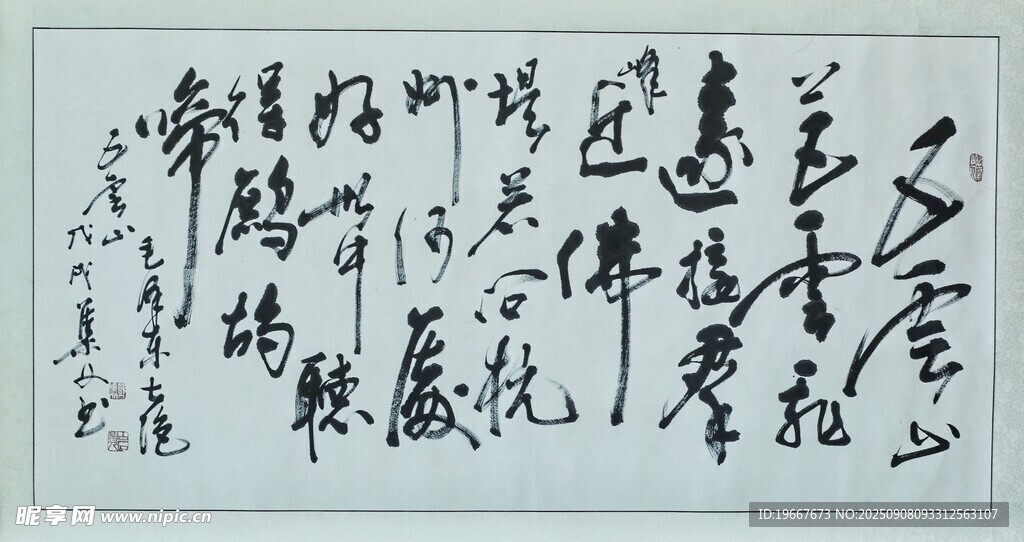 五雲山
上五雲飛
遠接羣
峰近拂
堤若问杭
州何處
好此中聽
得鷓鴣
啼
毛澤東七絕
五雲山
戊戌集文书
昵享网 www.nipic.cn
ID:19667673 NO:20250908093312563107